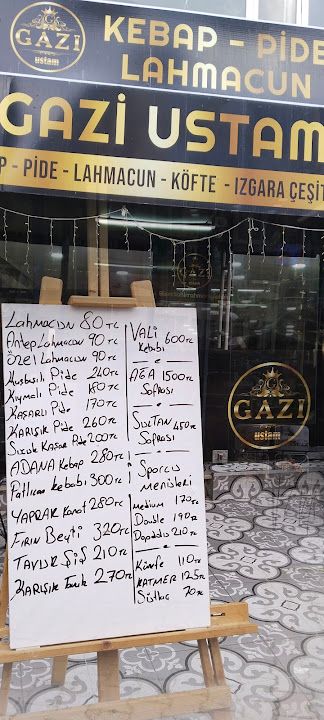 GAZİ
ustam
KEBAP - PİDE
LAHMACUN
GAZİ USTAM
P - PİDE - LAHMACUN - KÖFTE - IZGARA ÇEŞİT
GAZİ
GAZİ
ustam
Lahmacun 80 TL
Antep Lahmacun 90 TL
Özel Lahmacun 90 TL
Kuşbaşılı Pide 240 TL
Kıymalı Pide 180 TL
Kaşarlı Pide 170 TL
Karışık Pide 260 TL
Sucuk Kaşar Pide 200 TL
ADANA Kebap 280 TL
Patlıcan kebabı 300 TL
YAPRAK Kanat 280 TL
Fırın Beyti 320 TL
TAVUK ŞİŞ 210 TL
KARIŞIK Tavuk 270 TL
VALİ 600 TL
Kebabı
AĞA 1500 TL
Sofrası
SULTAN 450 TL
SOFRASI
Sporcu
Menüleri
medium 170 TL
Double 190 TL
210 TL
Künefe 110 TL
KATMER 125 TL
Sütlaç 70 TL